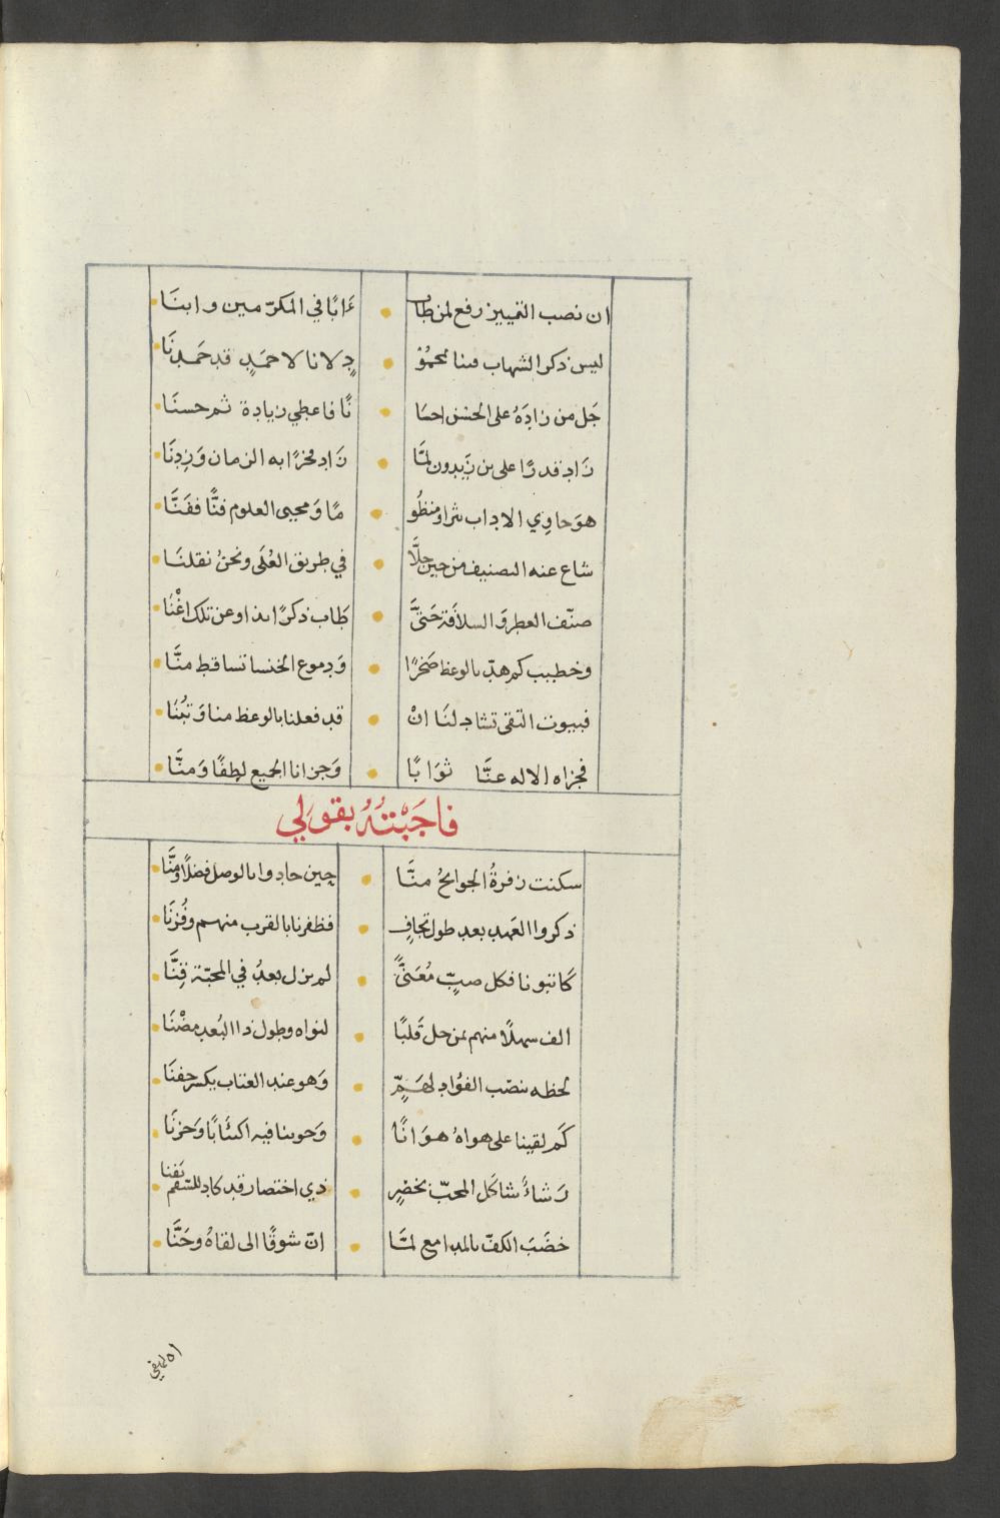 ان نصب التمييز رفع لمن طاب • ءابًا في المكرّمين وابنَا •
ليس ذكر الشهاب فينا بمحمُوْ • دٍ لانا لاحمَدٍ قد حَمدنَا •
جَل من زادَهُ على الحسن احسا • نًا فاعطي زيادة ثم حسنَا •
زَاد قدرًا على بن زَيدون لمَّا • زَاد فخرًا به الزمان وَزِدنَا •
هوَ حاوِي الاداب نثرا ومنظُو • مًا وَمحيي العلوم فنًّا ففَنَّا •
شاع عنه التصنيف من حين حلَّا • في طريق العُلَى ونحنُ نقلنَا •
صنّف العطر وَالسلافَة حَتىَّ • طَاب ذكرًا بذا وعن تلك اغْنَا •
وخطيب كم هدّ بالوعظ صَخرًا • وَدموع الخنسا تساقط منَّا •
فبيوت التقى تشاد لنَا انْ • قد فعلنا بالوعظ منا وَتبُنَا •
فجزاه الاله عنَّا ثوَابًا • وَجزانا الجميع لطفًا وَمنَّا •
فاجَبْتُهُ بقولي
سكنت زفرةُ الجوانحُ منَّا • حين جادوا بالوصل فضلًا ومنَّا •
ذكروا العَهد بعد طول تجافٍ • فظفرنا بالقرب منهم وفُزنَا •
كَاتبونا فكل صبٍّ مُعَنىًّ • لم يزل بعدُ في المحبّة قِنَّا •
الف سهلًا منهم لمن حل قَلبًا • لنواه وطول ذا البُعد مضْنَا •
لحظه ينصب الفؤاد لهَمٍّ • وَهو عند العتاب يكسر جفنَا •
كَم لقينا على هواهُ هوَانًا • وَحوينا فيه اكتئَابًا وَحزنَا •
رَشاءٌ شاكَل المحبّ بخصْرٍ • ذي اختصار قد كاد للسقم يَفنا •
خضَبَ الكفّ بالمدامع لمَّا • انّ شوقًا الى لقاهُ وحَنَّا •